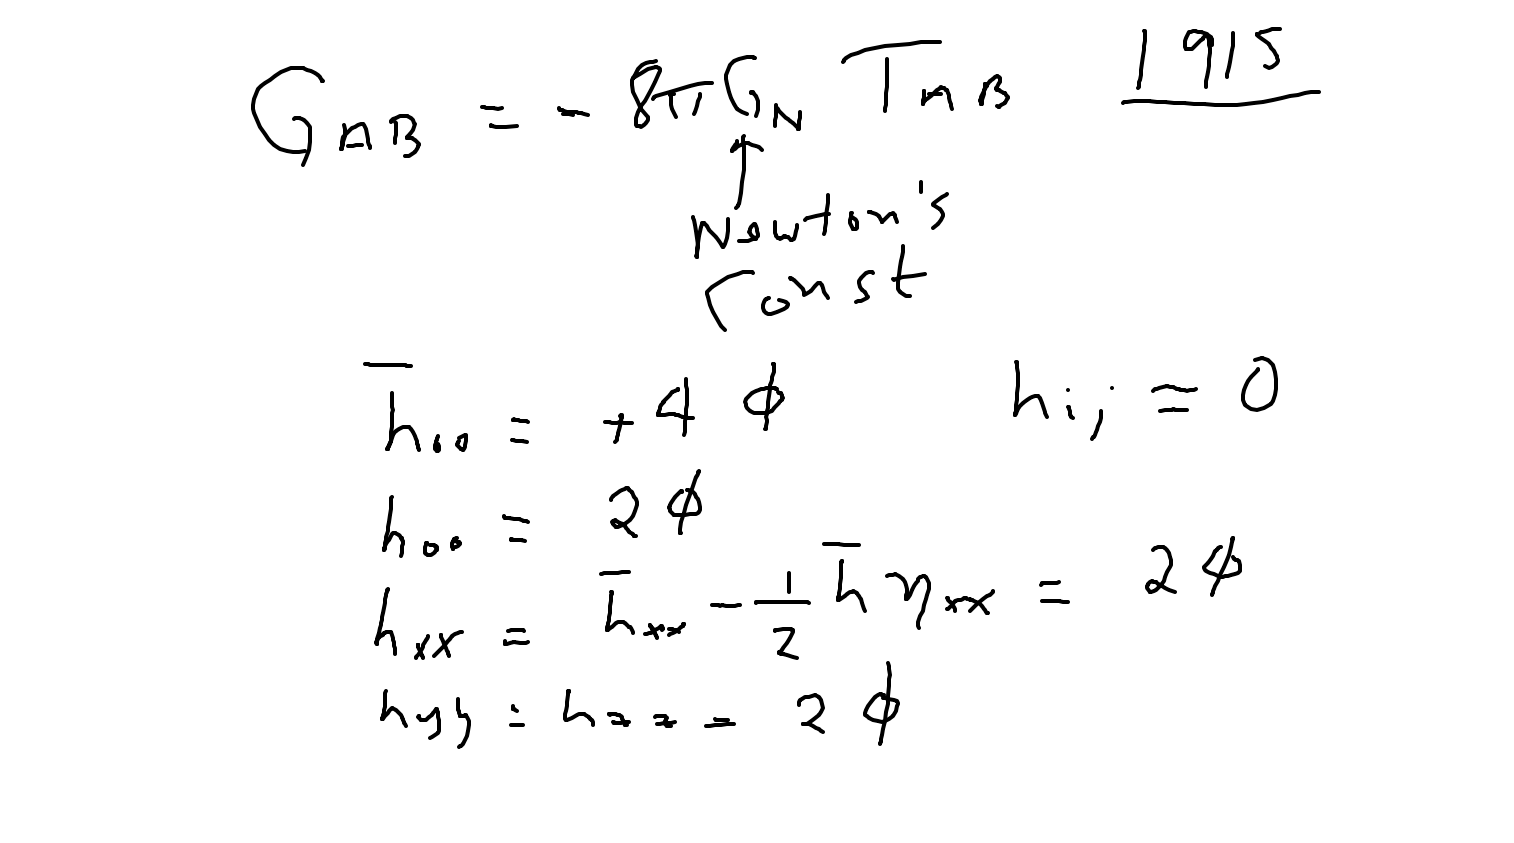 G_AB = - 8πG_N T_AB 1915
↑
Newton's
Const
h̄_00 = +4 ϕ h_ij = 0
h_00 = 2 ϕ
h_xx = h̄_xx - 1/2 h̄ η_xx = 2 ϕ
h_yy = h_zz = 2 ϕ